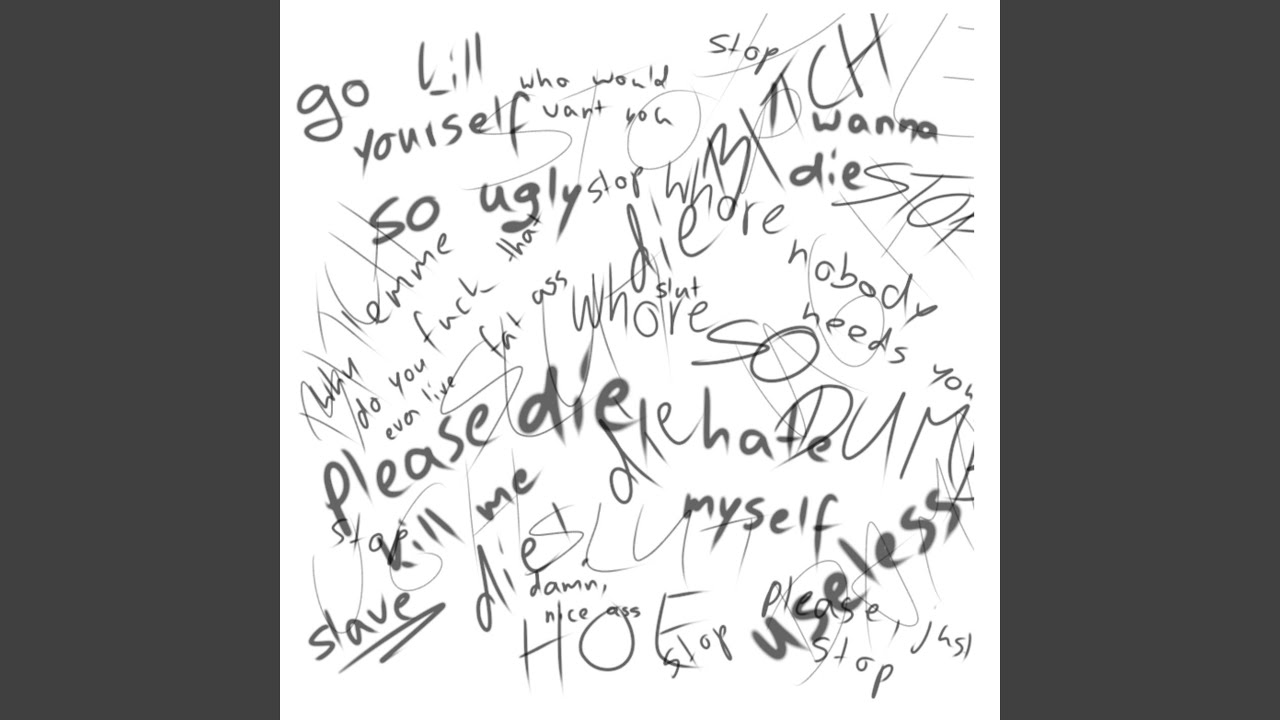 go kill
yourself
who would
want you
stop
BITCH
wanna
die
STOP
so ugly
stop
whore
die
Lemme
fuck
that
fat
ass
whore
slut
nobody
needs
you
SO
DUMB
Why
do you
even live
please die
die
hate
myself
stop
kill me
die
SLUT
useless
slave
damn,
nice ass
HOE
stop
please, just
stop
UGLY
SLUT
STOP